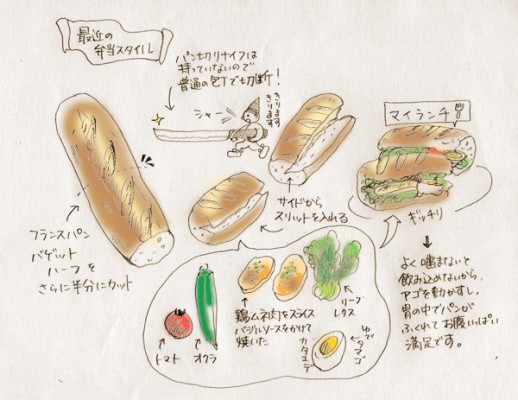 最近の
弁当スタイル
パン切りナイフは
持っていないので
普通の包丁で切断！
シャー
きります
きります
マイランチ
サイドから
スリットを入れる
ギッチリ
フランスパン
バゲット
ハーフを
さらに半分にカット
よく噛まないと
飲み込めないから、
アゴを動かすし、
胃の中でパンが
ふくれてお腹いっぱい
満足です。
トマト
オクラ
鶏ムネ肉をスライス
バジルソースをかけて
焼いた
リーフ
レタス
ゆで
タマゴ
カタユデ